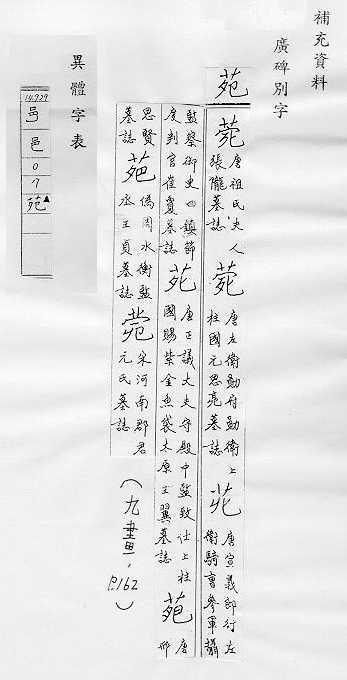 補充資料
廣碑別字
苑
菀 唐祖氏夫人張隴墓誌 菀 唐左衛勳府勳衛上柱國元思亮墓誌 唐宣義郎行左衛騎曹參軍攝
監察御史四鎮節度判官崔夐墓誌 苑 唐正議大夫守殿中監致仕上柱國賜紫金魚袋太原王翼墓誌 苑 唐邢
思賢墓誌 偽周水衡監丞王貞墓誌 宋河南郡君元氏墓誌
(九畫,P.162)
異體字表
14.929 邑 0 7 苑▲